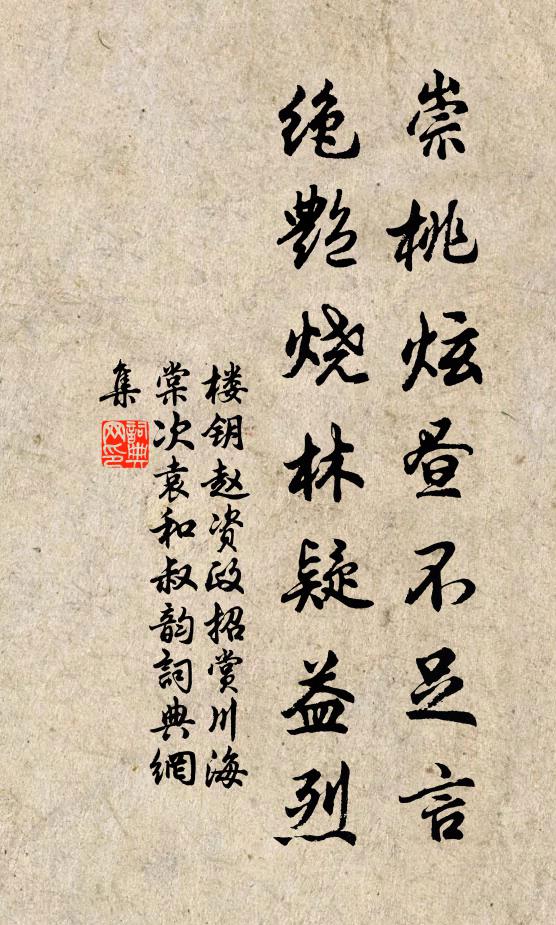 崇桃炫昼不足言
绝艳烧林疑益烈
楼钥赵资政招赏川海
棠次袁和叔韵詞典網
集
詞典网印